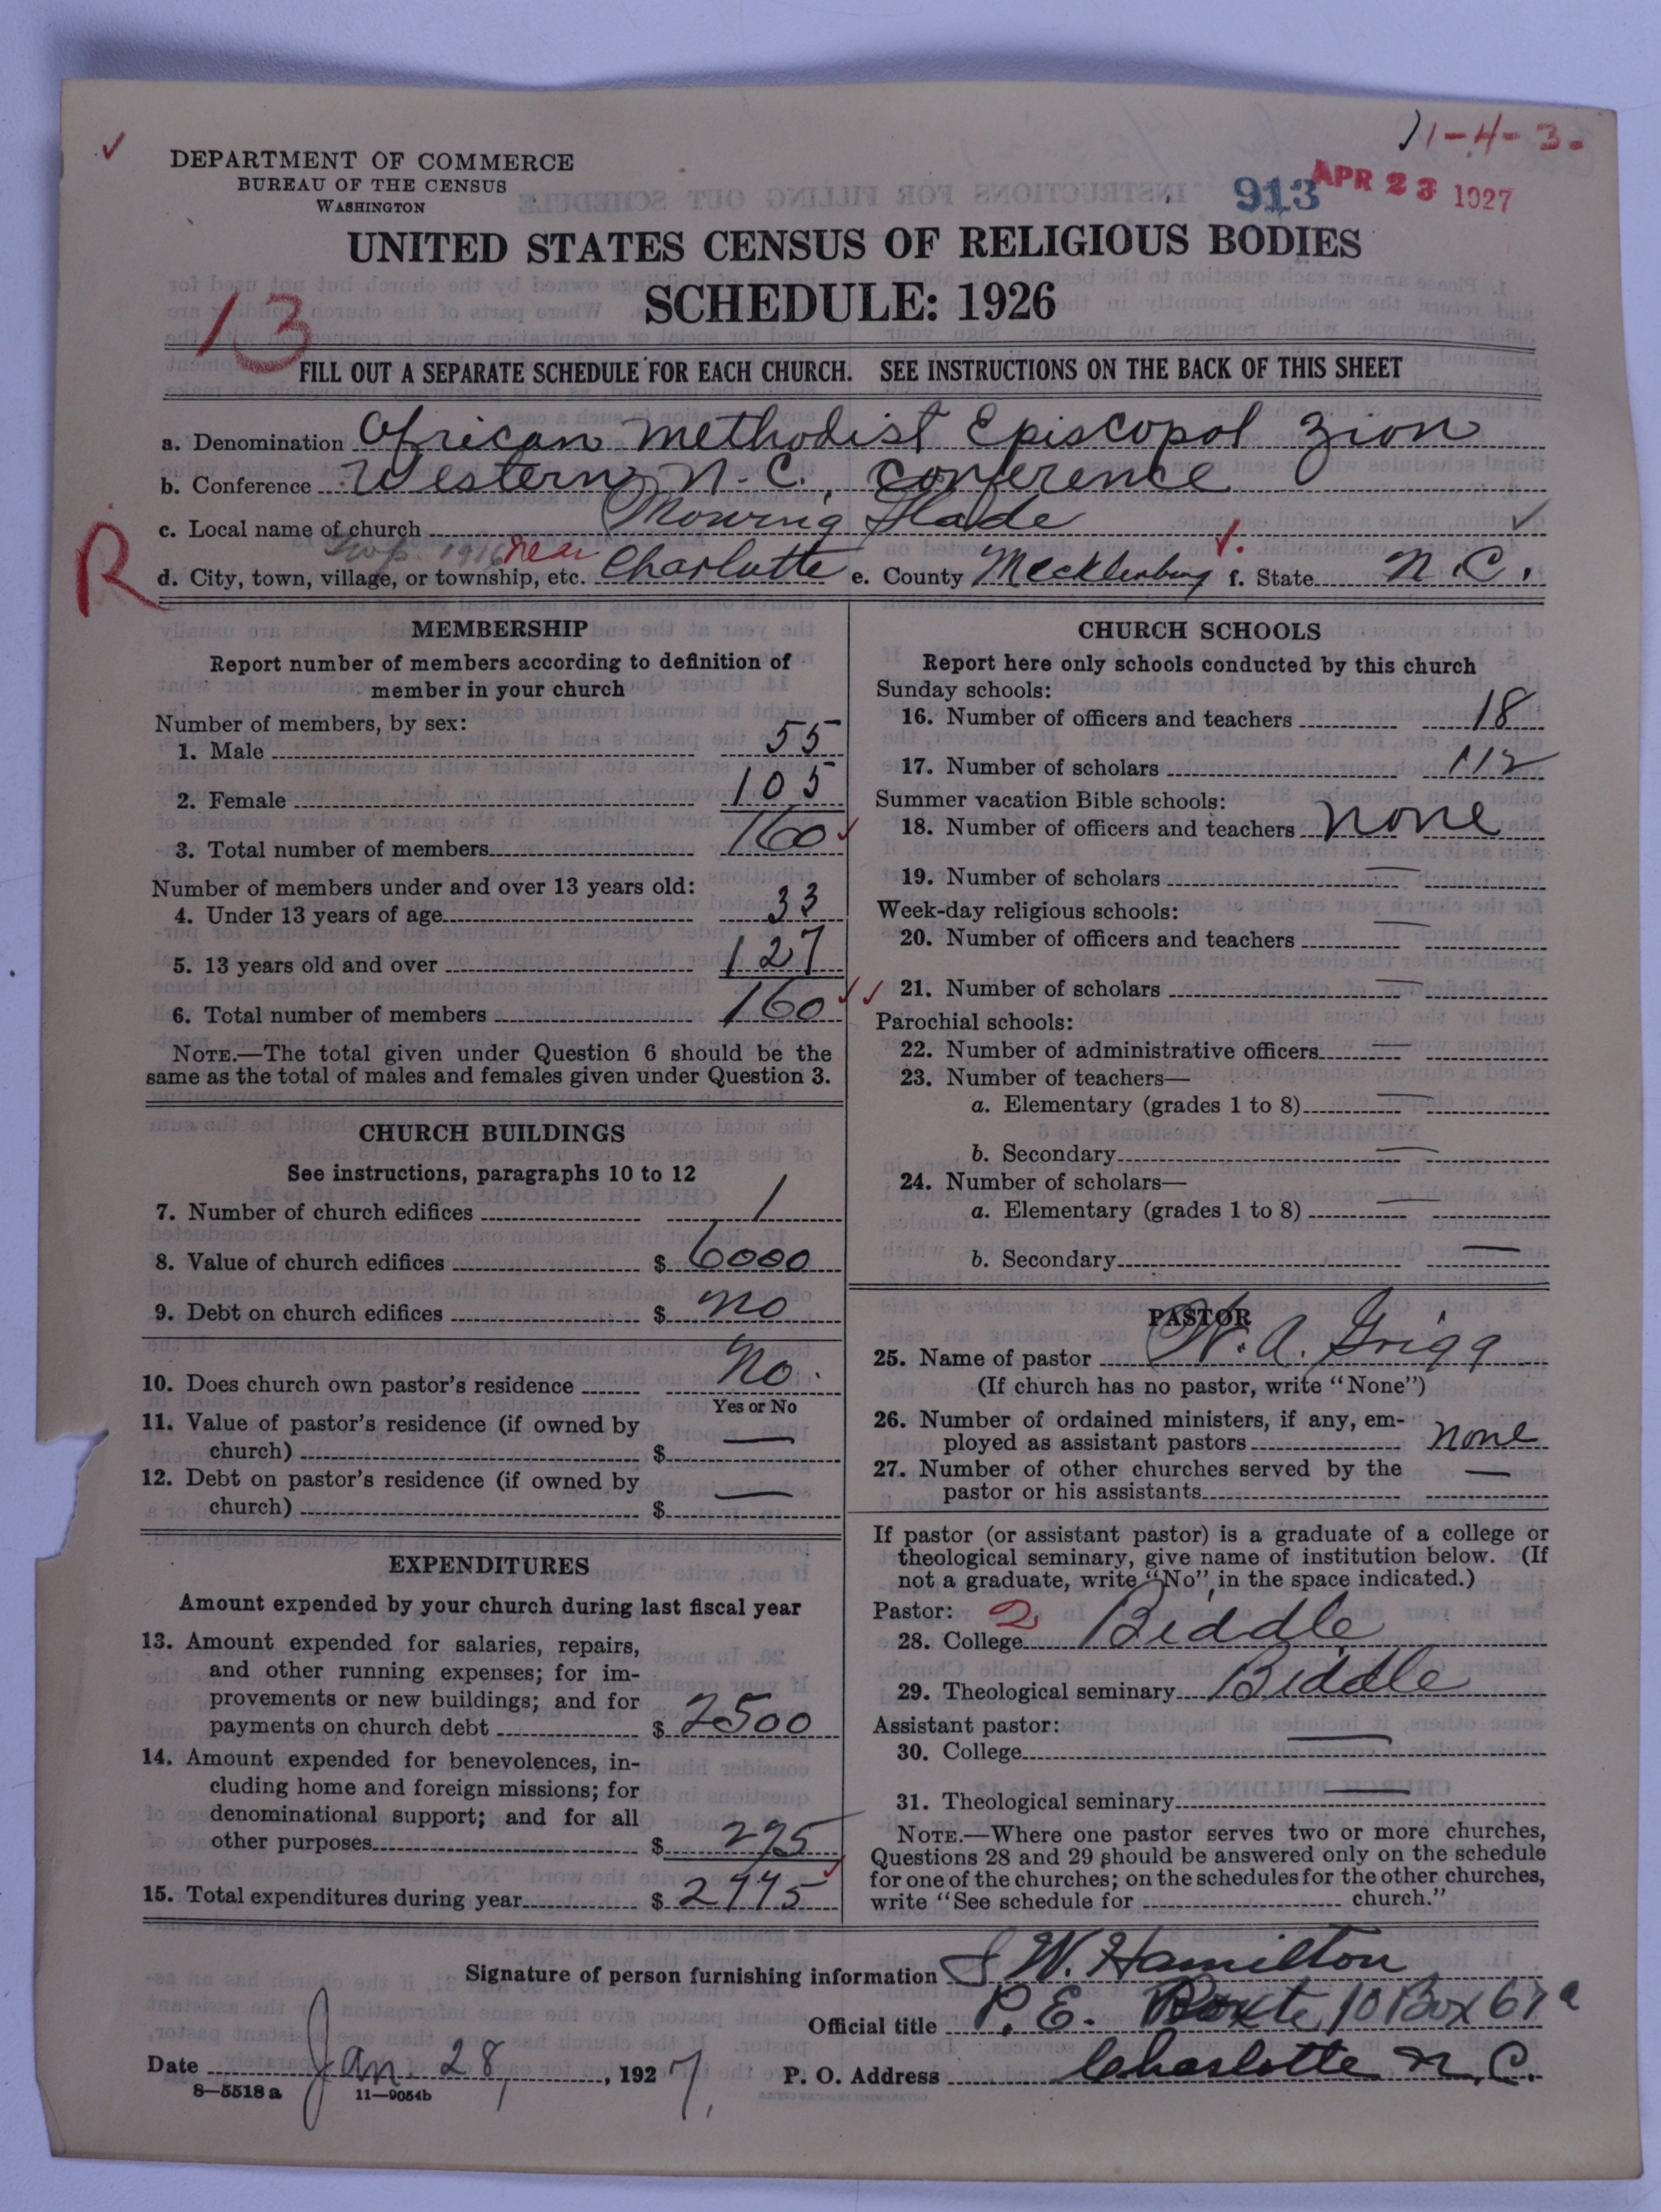 11-4-3.
DEPARTMENT OF COMMERCE
BUREAU OF THE CENSUS
WASHINGTON
913
APR 23 1927
UNITED STATES CENSUS OF RELIGIOUS BODIES
SCHEDULE: 1926
13
FILL OUT A SEPARATE SCHEDULE FOR EACH CHURCH. SEE INSTRUCTIONS ON THE BACK OF THIS SHEET
a. Denomination African Methodist Episcopal Zion
b. Conference Western N.C. Conference
c. Local name of church
R
d. City, town, village, or township, etc. near Charlotte e. County Mecklenburg f. State N.C.
MEMBERSHIP
Report number of members according to definition of
member in your church
Number of members, by sex:
1. Male 55
2. Female 105
3. Total number of members 160
Number of members under and over 13 years old:
4. Under 13 years of age 33
5. 13 years old and over 127
6. Total number of members 160
NOTE.—The total given under Question 6 should be the
same as the total of males and females given under Question 3.
CHURCH BUILDINGS
See instructions, paragraphs 10 to 12
7. Number of church edifices 1
8. Value of church edifices $ 6000
9. Debt on church edifices $ no
10. Does church own pastor's residence No.
Yes or No
11. Value of pastor's residence (if owned by
church) $ —
12. Debt on pastor's residence (if owned by
church) $ —
EXPENDITURES
Amount expended by your church during last fiscal year
13. Amount expended for salaries, repairs,
and other running expenses; for im-
provements or new buildings; and for
payments on church debt $ 2500
14. Amount expended for benevolences, in-
cluding home and foreign missions; for
denominational support; and for all
other purposes $
15. Total expenditures during year $
CHURCH SCHOOLS
Report here only schools conducted by this church
Sunday schools:
16. Number of officers and teachers 18
17. Number of scholars 112
Summer vacation Bible schools:
18. Number of officers and teachers none
19. Number of scholars —
Week-day religious schools:
20. Number of officers and teachers —
21. Number of scholars —
Parochial schools:
22. Number of administrative officers —
23. Number of teachers—
a. Elementary (grades 1 to 8) —
b. Secondary —
24. Number of scholars—
a. Elementary (grades 1 to 8) —
b. Secondary —
PASTOR
25. Name of pastor W. A. Grigg
(If church has no pastor, write "None")
26. Number of ordained ministers, if any, em-
ployed as assistant pastors none
27. Number of other churches served by the
pastor or his assistants —
If pastor (or assistant pastor) is a graduate of a college or
theological seminary, give name of institution below. (If
not a graduate, write "No" in the space indicated.)
Pastor: 2
28. College Biddle
29. Theological seminary Biddle
Assistant pastor:
30. College —
31. Theological seminary —
NOTE.—Where one pastor serves two or more churches,
Questions 28 and 29 should be answered only on the schedule
for one of the churches; on the schedules for the other churches,
write "See schedule for church."
Signature of person furnishing information S W. Hamilton
Official title P. E. Route 10 Box 67a
Date Jan 28, 1927, P. O. Address Charlotte N.C.
8—5518a 11—9054b